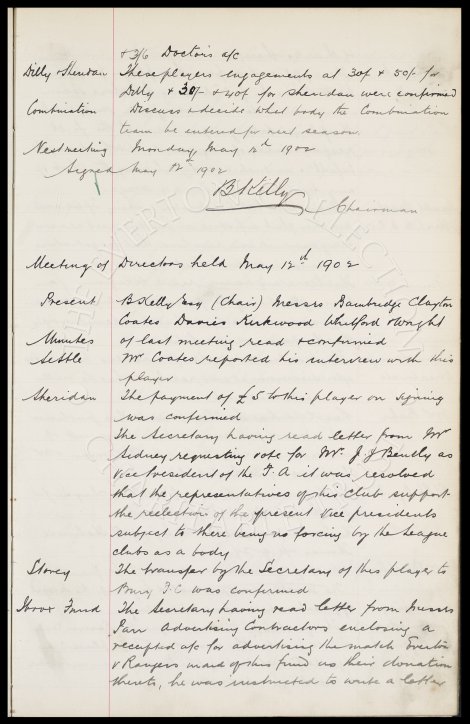 + 3/6 Doctors a/c
Dilly & Sheridan These players engagements at 30/- & 50/- for
Dilly & 30/- & 40/- for Sheridan were confirmed
Combination Discuss & decide what body the Combination
team be entered for next season
Next meeting Monday May 12th 1902
Signed May 12th 1902
B Kelly
Chairman
Meeting of Directors held May 12th 1902
Present B Kelly Esq (Chair) Messrs Bainbridge Clayton
Coates Davies Kirkwood Whitford & Wright
Minutes of last meeting read & confirmed
Settle Mr Coates reported his interview with this
player
Sheridan The payment of £5 to this player on signing
was confirmed
The Secretary having read letter from Mr
Sidney requesting vote for Mr. J. J Bently as
Vice President of the F. A it was resolved
that the representatives of this Club support
the reelection of the present Vice presidents
subject to there being no forcing by the League
clubs as a body
Storey The transfer by the Secretary of this player to
Bury F. C was confirmed
Ibrox Fund The Secretary having read letter from Messrs
Parr Advertising Contractors enclosing a
receipted a/c for advertising the match Everton
v Rangers in aid of this fund as their donation
thereto, he was instructed to write a letter
THE EVERTON COLLECTION